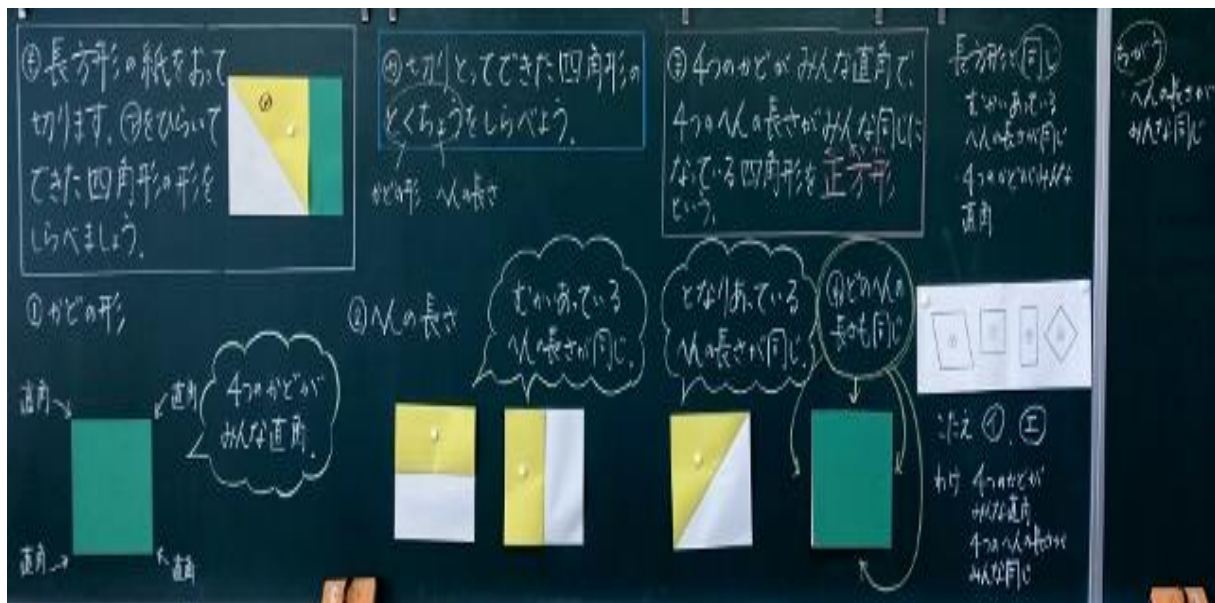 も 長方形の紙をおって
切ります。㋐をひらいて
できた四角形の形を
しらべましょう。
㋐
め 切りとってできた四角形の
とくちょうをしらべよう。
かどの形 へんの長さ
ま 4つのかどがみんな直角で、
4つのへんの長さがみんな同じに
なっている四角形を正方形
という。
長方形と同じ
むかいあっている
へんの長さが同じ
4つのかどがみんな
直角
ちがう
へんの長さが
みんな同じ
① かどの形
直角
直角
直角
直角
4つのかどが
みんな直角。
② へんの長さ
むかいあっている
へんの長さが同じ。
となりあっている
へんの長さが同じ。
どのへんの
長さも同じ
こたえ ㋑、㋓
わけ 4つのかどが
みんな直角
4つのへんの長さが
みんな同じ